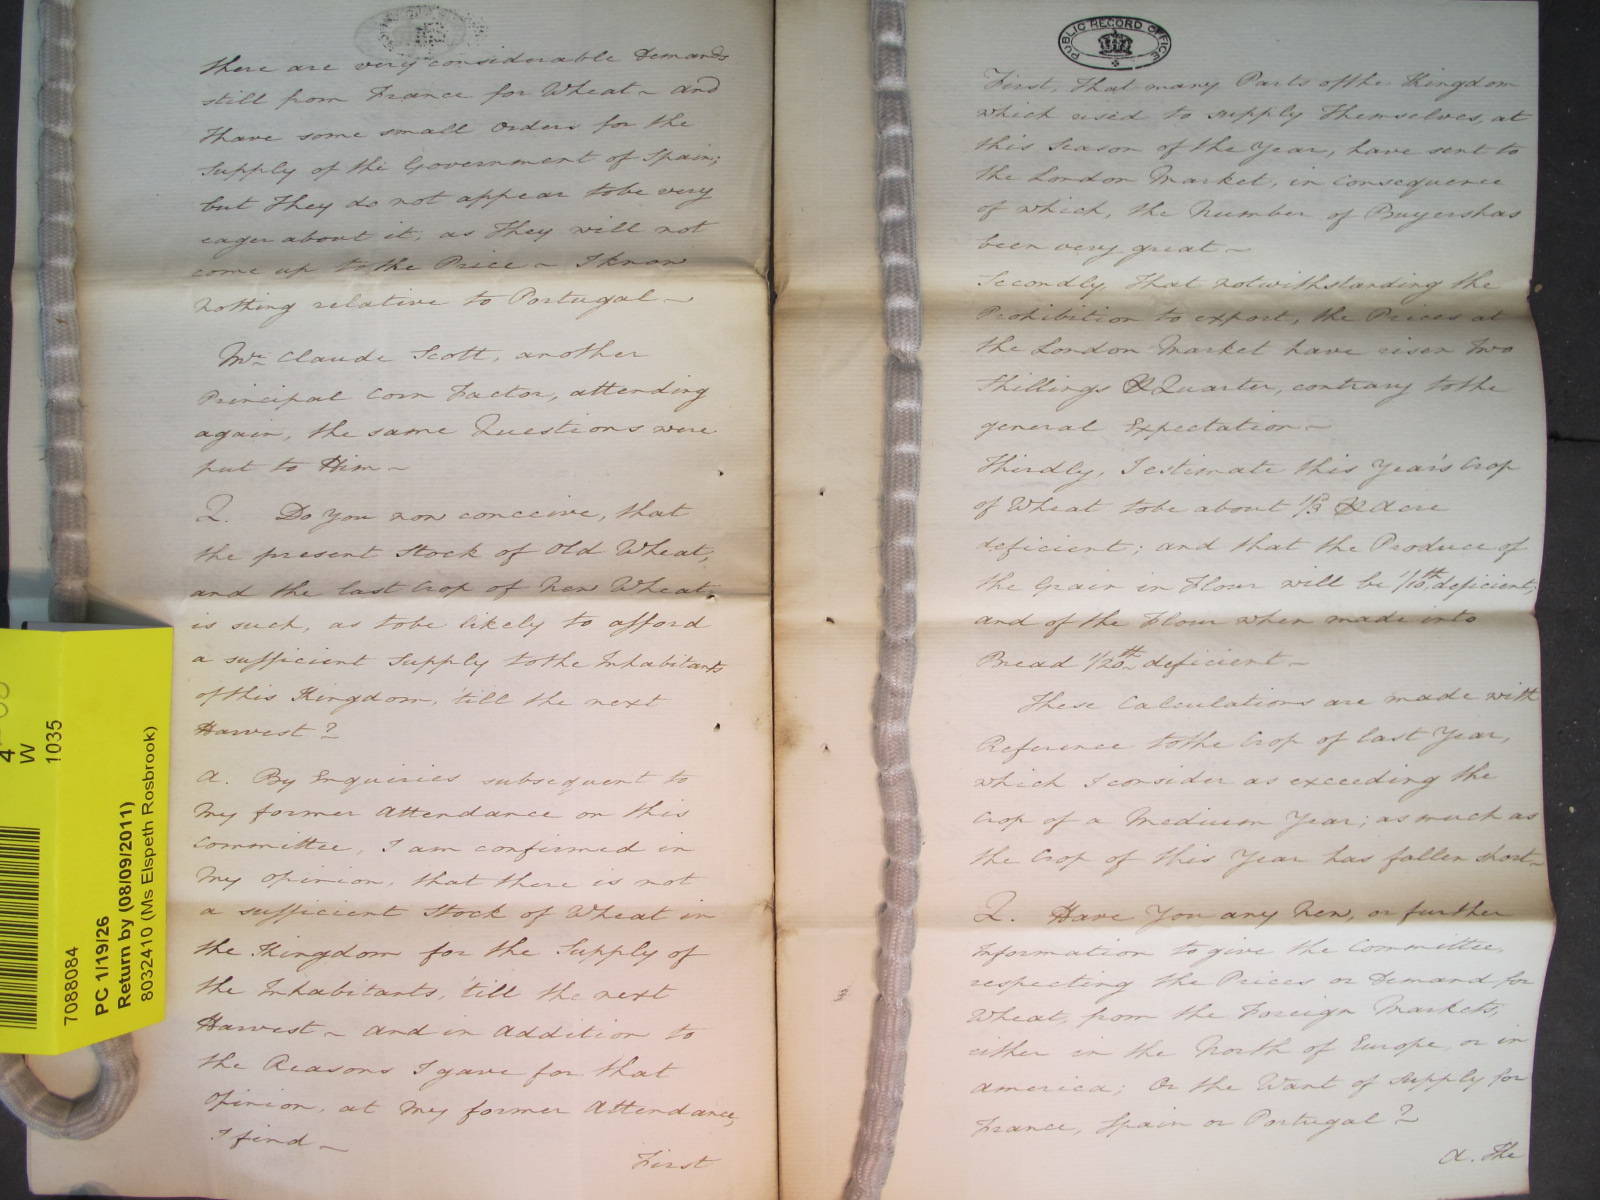 there are very considerable Demands
still from France for Wheat ~ and
I have some small Orders for the
Supply of the Government of Spain;
but They do not appear to be very
eager about it, as They will not
come up to the Price ~ I know
nothing relative to Portugal ~
Mr. Claude Scott, another
Principal Corn Factor, attending
again, the same Questions were
put to Him ~
Q. Do You now conceive, that
the present Stock of Old Wheat,
and the last Crop of New Wheat,
is such, as to be likely to afford
a sufficient Supply to the Inhabitants
of this Kingdom, 'till the next
Harvest?
A. By Enquiries subsequent to
My former Attendance on this
Committee, I am confirmed in
My Opinion, that there is not
a sufficient Stock of Wheat in
the Kingdom for the Supply of
the Inhabitants, 'till the next
Harvest ~ and in addition to
the Reasons I gave for that
Opinion, at My former Attendance,
I find ~
First
PUBLIC RECORD OFFICE
First, That many Parts of the Kingdom
which used to supply Themselves, at
this Season of the Year, have sent to
the London Market, in consequence
of which, the Number of Buyers has
been very great ~
Secondly, That notwithstanding the
Prohibition to export, the Prices at
the London Market have risen Two
Shillings ⅌ Quarter, contrary to the
general Expectation ~
Thirdly, I estimate this Year's Crop
of Wheat to be about 1/3 ⅌ Acre
deficient; and that the Produce of
the Grain in Flour will be 1/10th deficient;
and of the Flour when made into
Bread 1/20th deficient ~
These Calculations are made with
Reference to the Crop of last Year,
which I consider as exceeding the
Crop of a Medium Year; as much as
the Crop of this Year has fallen short ~
Q. Have You any New, or further
Information to give the Committee,
respecting the Prices or Demand for
Wheat, from the Foreign Markets,
either in the North of Europe, or in
America; Or the Want of Supply for
France, Spain or Portugal?
A. The
4
W
1035
7088084
PC 1/19/26
Return by (08/09/2011)
8032410 (Ms Elspeth Rosbrook)